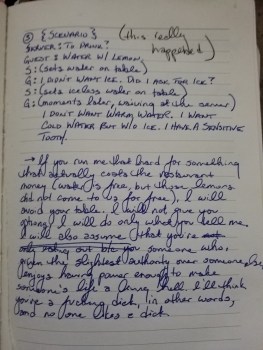 ③ {SCENARIO} (this really happened)
SERVER: TO DRINK?
GUEST: WATER W/ LEMON.
S: (sets water on table)
G: I DIDN'T WANT ICE. DID I ASK FOR ICE?
S: (sets iceless water on table)
G: (moments later, waiving at the server)
I DON'T WANT WARM WATER. I WANT
COLD WATER BUT W/O ICE. I HAVE A SENSITIVE
TOOTH.
→ If you run me that hard for something
that actually costs the restaurant
money (water is free, but those lemons
did not come to us for free), I will
avoid your table. I will not give you
I will do only what you tell me.
I will also assume that you're
someone who,
given the slightest authority over someone else,
enjoys having power enough to make
someone's life a living hell. I'll think
you're a fucking dick, in other words,
and no one likes a dick.